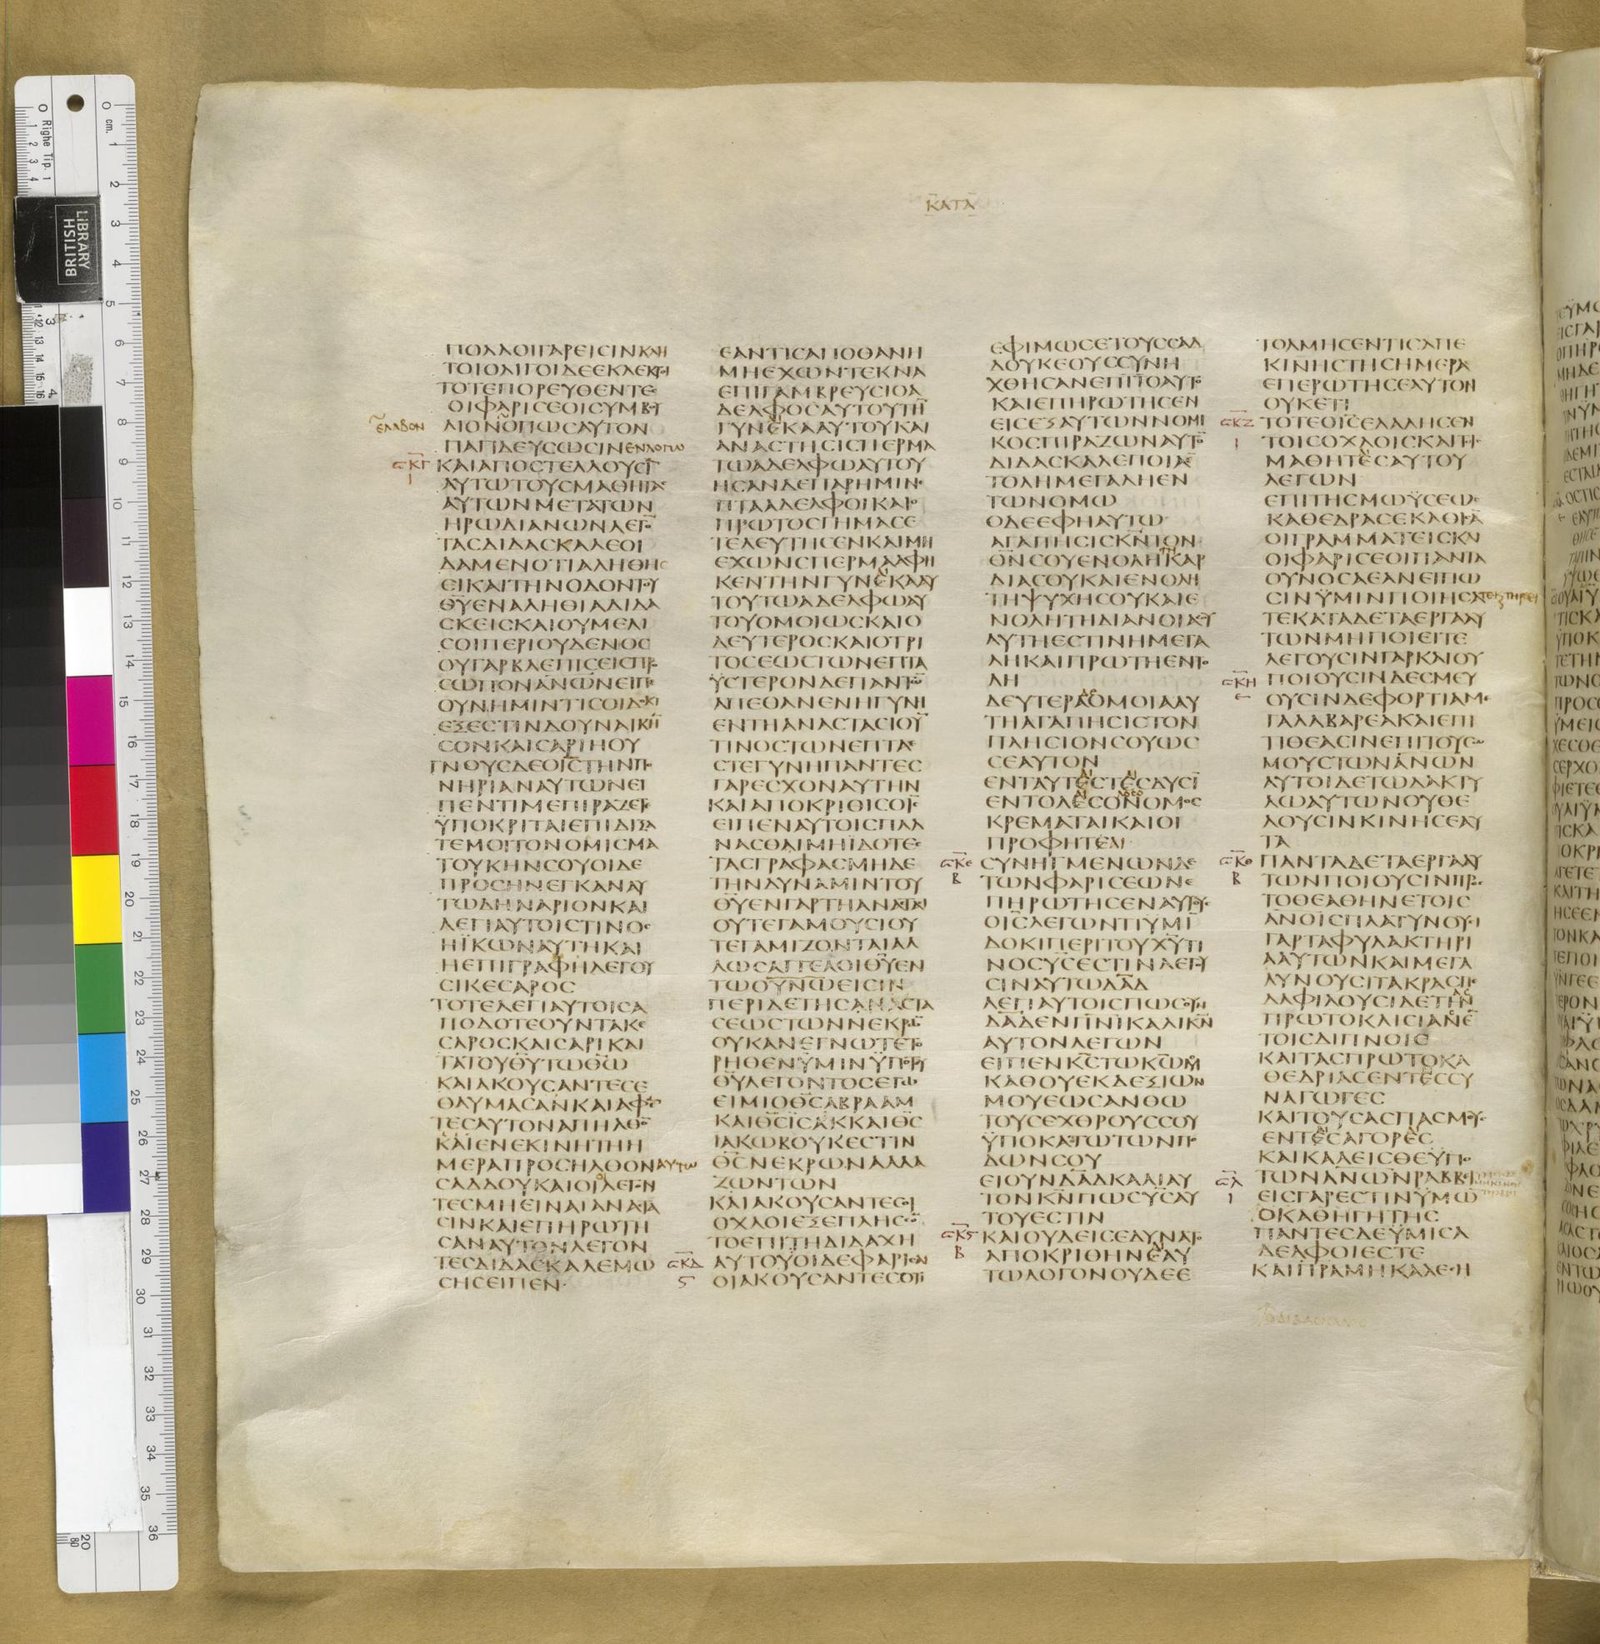 ΚΑΤΑ
ΠΟΛΛΟΙΓΑΡΕΙCΙΝΚΛΗ
ΤΟΙΟΛΙΓΟΙΔΕΕΚΛΕΚΤΟΙ
ΤΟΤΕΠΟΡΕΥΘΕΝΤΕ
ΟΙΦΑΡΙCΕΟΙCΥΜΒΟΥ
ΕΛΑΒΟΝ
ΛΙΟΝΟΠΩCΑΥΤΟΝ
ΠΑΓΙΔΕΥCΩCΙΝΕΝΛΟΓΩ
CΚΓ
Ι
ΚΑΙΑΠΟCΤΕΛΛΟΥCΙ
ΑΥΤΩΤΟΥCΜΑΘΗΤΑC
ΑΥΤΩΝΜΕΤΑΤΩΝ
ΗΡΩΔΙΑΝΩΝΛΕΓΟ
ΤΑCΔΙΔΑCΚΑΛΕΟΙ
ΔΑΜΕΝΟΤΙΑΛΗΘΗC
ΕΙΚΑΙΤΗΝΟΔΟΝΤΟΥ
ΘΥΕΝΑΛΗΘΙΑΔΙΔΑ
CΚΕΙCΚΑΙΟΥΜΕΛΙ
CΟΙΠΕΡΙΟΥΔΕΝΟC
ΟΥΓΑΡΒΛΕΠΙCΕΙCΠΡΟ
CΩΠΟΝΑΝΩΝΕΙΠΕ
ΟΥΝΗΜΙΝΤΙCΟΙΔΟΚΙ
ΕΞΕCΤΙΝΔΟΥΝΑΙΚΗ
CΟΝΚΑΙCΑΡΙΗΟΥ
ΓΝΟΥCΔΕΟΙCΤΗΝΠΟ
ΝΗΡΙΑΝΑΥΤΩΝΕΙ
ΠΕΝΤΙΜΕΠΙΡΑΖΕΤΕ
ΫΠΟΚΡΙΤΑΙΕΠΙΔΙΞΑ
ΤΕΜΟΙΤΟΝΟΜΙCΜΑ
ΤΟΥΚΗΝCΟΥΟΙΔΕ
ΠΡΟCΗΝΕΓΚΑΝΑΥ
ΤΩΔΗΝΑΡΙΟΝΚΑΙ
ΛΕΓΙΑΥΤΟΙCΤΙΝΟC
ΗΪΚΩΝΑΥΤΗΚΑΙ
ΗΕΠΙΓΡΑΦΗΛΕΓΟΥ
CΙΚΕCΑΡΟC
ΤΟΤΕΛΕΓΙΑΥΤΟΙCΑ
ΠΟΔΟΤΕΟΥΝΤΑΚΕ
CΑΡΟCΚΑΙCΑΡΙΚΑΙ
ΤΑΤΟΥΘΥΤΩΘΩ
ΚΑΙΑΚΟΥCΑΝΤΕC
ΘΑΥΜΑCΑΝΚΑΙΑΦΕ
ΤΕCΑΥΤΟΝΑΠΗΛΘΟ
ΚΑΙΕΝΕΚΙΝΗΤΗΗ
ΜΕΡΑΠΡΟCΗΛΘΟΝΑΥΤΩ
CΑΔΔΟΥΚΑΙΟΙΛΕΓΟΝ
ΤΕCΜΗΕΙΝΑΙΑΝΑCΤΑ
CΙΝΚΑΙΕΠΗΡΩΤΗ
CΑΝΑΥΤΟΝΛΕΓΟΝ
ΤΕCΔΙΔΑCΚΑΛΕΜΩ
CΗCΕΙΠΕΝ
ΕΑΝΤΙCΑΠΟΘΑΝΗ
ΜΗΕΧΩΝΤΕΚΝΑ
ΕΠΙΓΑΜΒΡΕΥCΙΟΑ
ΔΕΛΦΟCΑΥΤΟΥΤΗ
ΓΥΝΕΚΑΑΥΤΟΥΚΑΙ
ΑΝΑCΤΗCΙCΠΕΡΜΑ
ΤΩΑΔΕΛΦΩΑΥΤΟΥ
ΗCΑΝΔΕΠΑΡΗΜΙΝ
ΠΤΑΑΔΕΛΦΟΙΚΑΙΟ
ΠΡΩΤΟCΓΗΜΑCΕ
ΤΕΛΕΥΤΗCΕΝΚΑΙΜΗ
ΕΧΩΝCΠΕΡΜΑΑΦΗ
ΚΕΝΤΗΝΓΥΝΕΚΑΑΥ
ΤΟΥΤΩΑΔΕΛΦΩΑΥ
ΤΟΥΟΜΟΙΩCΚΑΙΟ
ΔΕΥΤΕΡΟCΚΑΙΟΤΡΙ
ΤΟCΕΩCΤΩΝΕΠΤΑ
ΫCΤΕΡΟΝΔΕΠΑΝΤΩ
ΑΠΕΘΑΝΕΝΗΓΥΝΗ
ΕΝΤΗΑΝΑCΤΑCΙΟΥ
ΤΙΝΟCΤΩΝΕΠΤΑ
CΤΕΓΥΝΗΠΑΝΤΕC
ΓΑΡΕCΧΟΝΑΥΤΗΝ
ΚΑΙΑΠΟΚΡΙΘΙCΟΙC
ΕΙΠΕΝΑΥΤΟΙCΠΛΑ
ΝΑCΘΑΙΜΗΙΔΟΤΕC
ΤΑCΓΡΑΦΑCΜΗΔΕ
ΤΗΝΔΥΝΑΜΙΝΤΟΥ
ΘΥΕΝΓΑΡΤΗΑΝΑCΤΑCΙ
ΟΥΤΕΓΑΜΟΥCΙΟΥ
ΤΕΓΑΜΙΖΟΝΤΑΙΑΛ
ΛΩCΑΓΓΕΛΟΙΘΥΕΝ
ΤΩΟΥΝΩΕΙCΙΝ
ΠΕΡΙΔΕΤΗCΑΝΑCΤΑ
CΕΩCΤΩΝΝΕΚΡΩ
ΟΥΚΑΝΕΓΝΩΤΕΤΟ
ΡΗΘΕΝΫΜΙΝΫΠΟΤΟΥ
ΘΥΛΕΓΟΝΤΟCΕΓΩ
ΕΙΜΙΟΘCΑΒΡΑΑΜ
ΚΑΙΘCΙCΑΚΚΑΙΘC
ΙΑΚΩΒΟΥΚΕCΤΙΝ
ΘCΝΕΚΡΩΝΑΛΛΑ
ΖΩΝΤΩΝ
ΚΑΙΑΚΟΥCΑΝΤΕCΟΙ
ΟΧΛΟΙΕΞΕΠΛΗCCΟ
ΤΟΕΠΙΤΗΔΙΔΑΧΗ
CΚΔ
ΑΥΤΟΥΟΙΔΕΦΑΡΙCΑΙ
ΟΙΑΚΟΥCΑΝΤΕCΟΤΙ
ΕΦΙΜΩCΕΤΟΥCCΑΔ
ΔΟΥΚΕΟΥCCΥΝΗ
ΧΘΗCΑΝΕΠΙΤΟΑΥΤΟ
ΚΑΙΕΠΗΡΩΤΗCΕΝ
ΕΙCΕΞΑΥΤΩΝΝΟΜΙ
ΚΟCΠΙΡΑΖΩΝΑΥΤΟ
ΔΙΔΑCΚΑΛΕΠΟΙΑ
ΤΟΛΗΜΕΓΑΛΗΕΝ
ΤΩΝΟΜΩ
ΟΔΕΕΦΗΑΥΤΩ
ΑΓΑΠΗCΙCΚΝΤΟΝ
ΘΝCΟΥΕΝΟΛΗΚΑΡ
ΔΙΑCΟΥΚΑΙΕΝΟΛΗ
ΤΗΨΥΧΗCΟΥΚΑΙΕ
ΝΟΛΗΤΗΔΙΑΝΟΙΑCΟΥ
ΑΥΤΗΕCΤΙΝΗΜΕΓΑ
ΛΗΚΑΙΠΡΩΤΗΕΝΤΟ
ΛΗ
ΔΕΥΤΕΡΑΟΜΟΙΑΑΥ
ΤΗΑΓΑΠΗCΙCΤΟΝ
ΠΛΗCΙΟΝCΟΥΩC
CΕΑΥΤΟΝ
ΕΝΤΑΥΤΕCΤΕCΔΥCΙ
ΕΝΤΟΛΕCΟΝΟΜΟC
ΚΡΕΜΑΤΑΙΚΑΙΟΙ
ΠΡΟΦΗΤΕ
CΚΕ
Β
CΥΝΗΓΜΕΝΩΝΔΕ
ΤΩΝΦΑΡΙCΕΩΝΕ
ΠΗΡΩΤΗCΕΝΑΥΤΟΥ
ΟΙCΛΕΓΩΝΤΙΥΜΙ
ΔΟΚΙΠΕΡΙΤΟΥΧΥΤΙ
ΝΟCΥCΕCΤΙΝΛΕΓΟΥ
CΙΝΑΥΤΩΔΑΔ
ΛΕΓΙΑΥΤΟΙCΠΩCΟΥΝ
ΔΑΔΕΝΠΝΙΚΑΛΙΚΝ
ΑΥΤΟΝΛΕΓΩΝ
ΕΙΠΕΝΚCΤΩΚΩΜΟΥ
ΚΑΘΟΥΕΚΔΕΞΙΩΝ
ΜΟΥΕΩCΑΝΘΩ
ΤΟΥCΕΧΘΡΟΥCCΟΥ
ΫΠΟΚΑΤΩΤΩΝΠΟ
ΔΩΝCΟΥ
ΕΙΟΥΝΔΑΔΚΑΛΙΑΥ
ΤΟΝΚΝΠΩCΥCΑΥ
ΤΟΥΕCΤΙΝ
CΚϚ
Β
ΚΑΙΟΥΔΕΙCΕΔΥΝΑΤΟ
ΑΠΟΚΡΙΘΗΝΕΑΥ
ΤΩΛΟΓΟΝΟΥΔΕΕ
ΤΟΛΜΗCΕΝΤΙCΑΠΕ
ΚΙΝΗCΤΗCΗΜΕΡΑ
ΕΠΕΡΩΤΗCΕΑΥΤΟΝ
ΟΥΚΕΤΙ
CΚΖ
Ι
ΤΟΤΕΟΙCΕΛΑΛΗCΕΝ
ΤΟΙCΟΧΛΟΙCΚΑΙΤΟΙ
ΜΑΘΗΤΕCΑΥΤΟΥ
ΛΕΓΩΝ
ΕΠΙΤΗCΜΩΫCΕΩC
ΚΑΘΕΔΡΑCΕΚΑΘΙCΑ
ΟΙΓΡΑΜΜΑΤΕΙCΚΑΙ
ΟΙΦΑΡΙCΕΟΙΠΑΝΤΑ
ΟΥΝΟCΑΕΑΝΕΙΠΩ
CΙΝΫΜΙΝΠΟΙΗCΑ
ΤΕΚΑΤΑΔΕΤΑΕΡΓΑΑΥ
ΤΩΝΜΗΠΟΙΕΙΤΕ
ΛΕΓΟΥCΙΝΓΑΡΚΑΙΟΥ
CΚΗ
ΠΟΙΟΥCΙΝΔΕCΜΕΥ
ΟΥCΙΝΔΕΦΟΡΤΙΑΜΕ
ΓΑΛΑΒΑΡΕΑΚΑΙΕΠΙ
ΤΙΘΕΑCΙΝΕΠΙΤΟΥCΩ
ΜΟΥCΤΩΝΑΝΩΝ
ΑΥΤΟΙΔΕΤΩΔΑΚΤΥ
ΛΩΑΥΤΩΝΟΥΘΕ
ΛΟΥCΙΝΚΙΝΗCΕΑΥ
ΤΑ
CΚΘ
Β
ΠΑΝΤΑΔΕΤΑΕΡΓΑΑΥ
ΤΩΝΠΟΙΟΥCΙΝΠΡΟC
ΤΟΘΕΑΘΗΝΕΤΟΙC
ΑΝΟΙCΠΛΑΤΥΝΟΥCΙ
ΓΑΡΤΑΦΥΛΑΚΤΗΡΙ
ΑΑΥΤΩΝΚΑΙΜΕΓΑ
ΛΥΝΟΥCΙΤΑΚΡΑCΠΕ
ΔΑΦΙΛΟΥCΙΔΕΤΗΝ
ΠΡΩΤΟΚΛΙCΙΑΝΕ
ΤΟΙCΔΙΠΝΟΙC
ΚΑΙΤΑCΠΡΩΤΟΚΑ
ΘΕΔΡΙΑCΕΝΤΕCCΥ
ΝΑΓΩΓΕC
ΚΑΙΤΟΥCΑCΠΑCΜΟΥC
ΕΝΤΕCΑΓΟΡΕC
ΚΑΙΚΑΛΕΙCΘΕΫΠΟ
CΛ
Ι
ΤΩΝΑΝΩΝΡΑΒΒΙ
ΕΙCΓΑΡΕCΤΙΝΫΜΩ
ΟΚΑΘΗΓΗΤΗC
ΠΑΝΤΕCΔΕΫΜΙCΑ
ΔΕΛΦΟΙΕCΤΕ